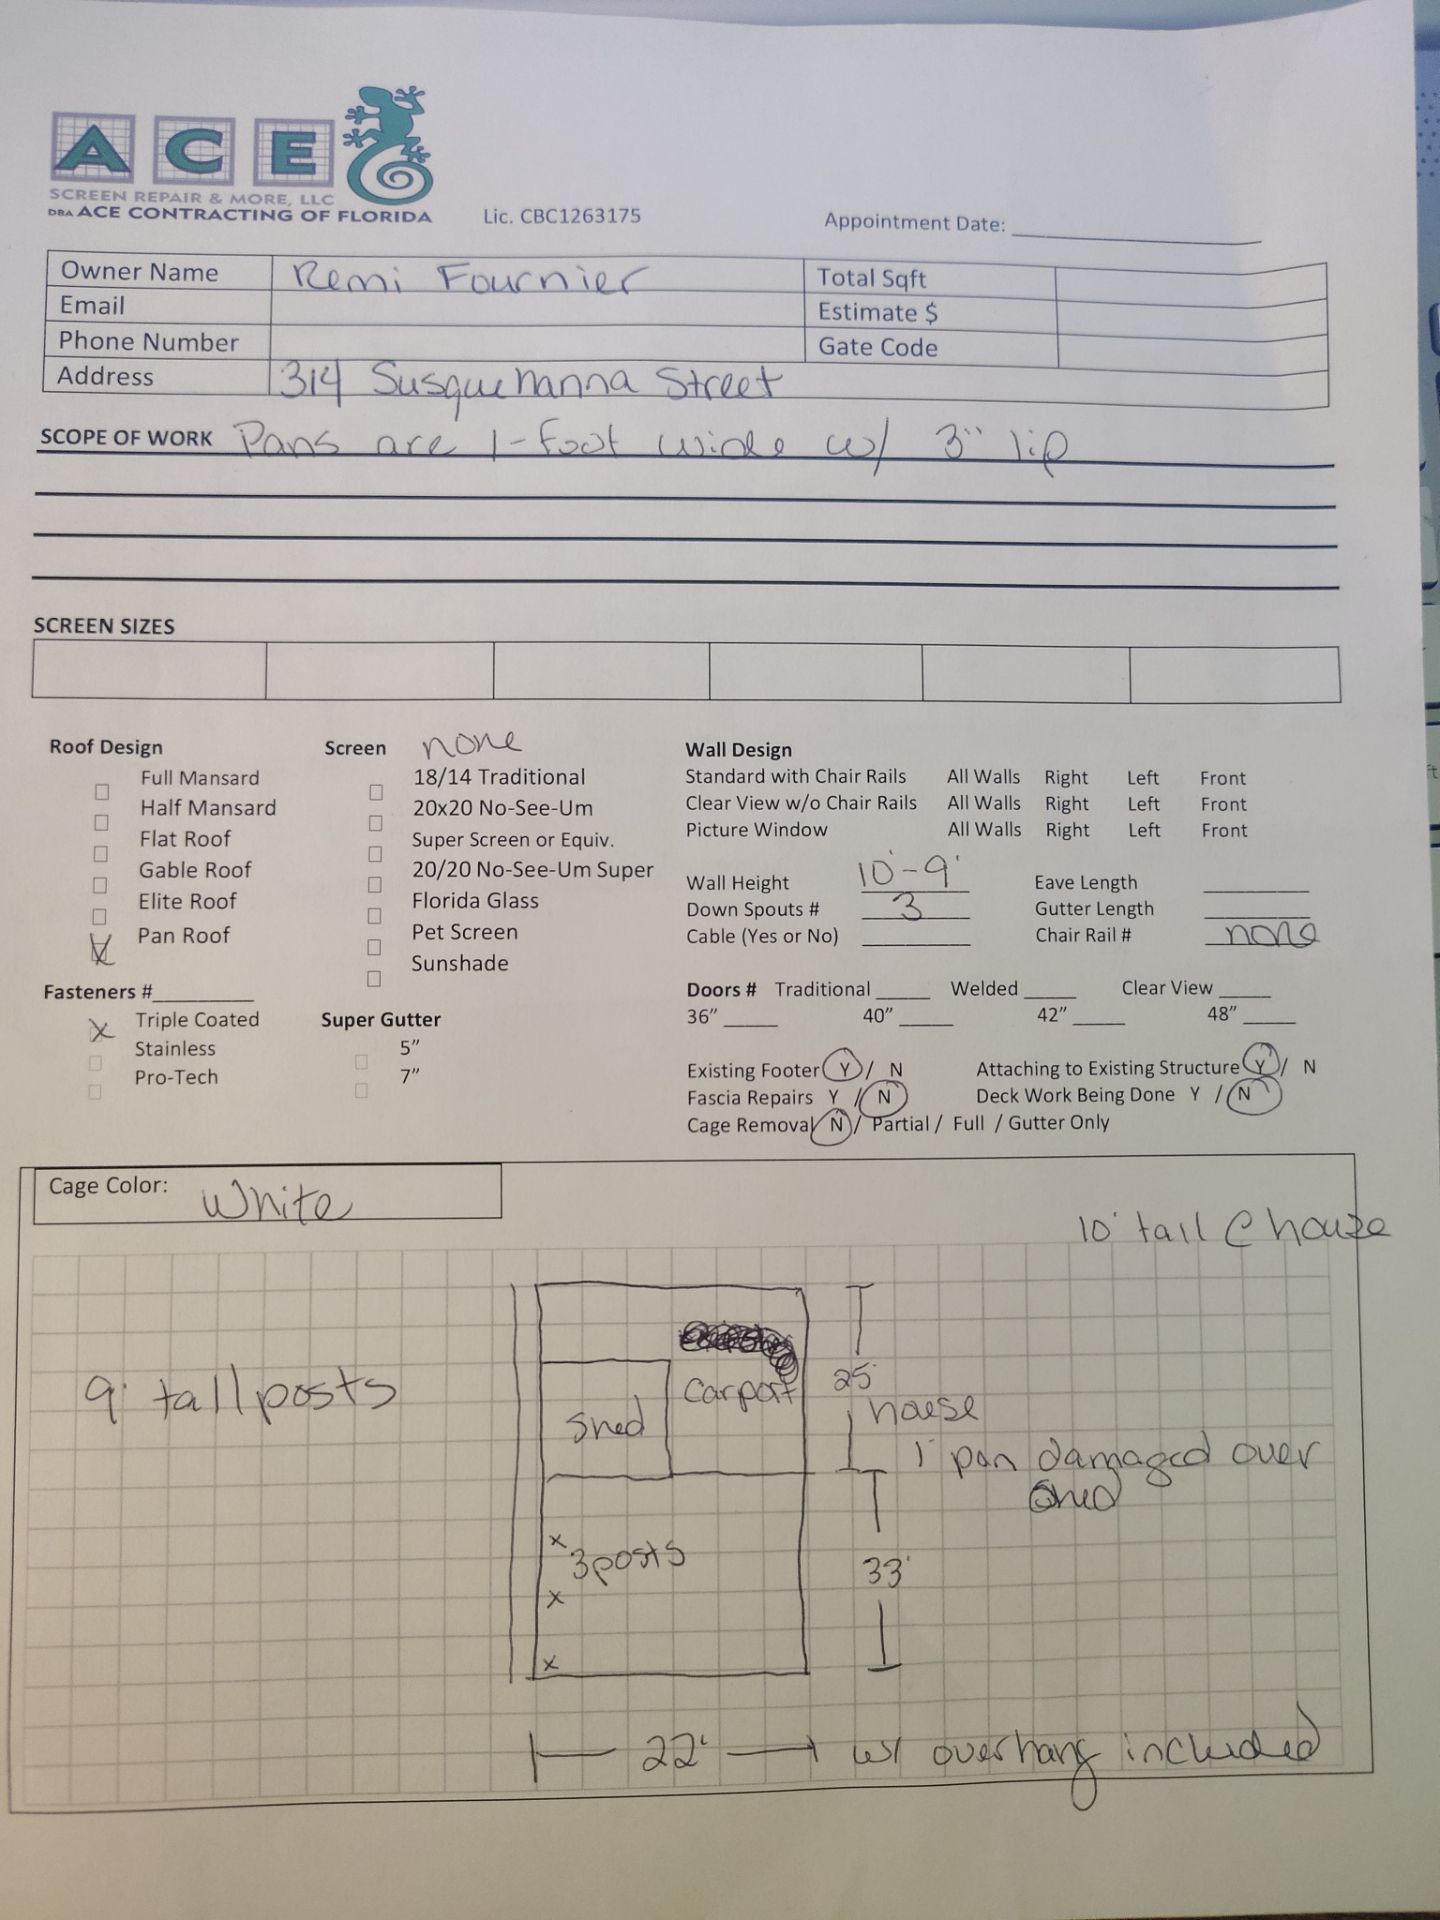 ACE
SCREEN REPAIR & MORE, LLC
DBA ACE CONTRACTING OF FLORIDA
Lic. CBC1263175
Appointment Date:
Owner Name Remi Fournier Total Sqft
Email Estimate $
Phone Number Gate Code
Address 314 Susquehanna Street
SCOPE OF WORK Pans are 1-foot wide w/ 3" lip
SCREEN SIZES
Roof Design Screen none Wall Design
Full Mansard 18/14 Traditional Standard with Chair Rails All Walls Right Left Front
Half Mansard 20x20 No-See-Um Clear View w/o Chair Rails All Walls Right Left Front
Flat Roof Super Screen or Equiv. Picture Window All Walls Right Left Front
Gable Roof 20/20 No-See-Um Super Wall Height 10'-9' Eave Length
Elite Roof Florida Glass Down Spouts # 3 Gutter Length
Pan Roof Pet Screen Cable (Yes or No) Chair Rail # none
Sunshade
Fasteners # Doors # Traditional Welded Clear View
X Triple Coated Super Gutter 36" 40" 42" 48"
Stainless 5"
Pro-Tech 7"
Existing Footer Y / N Attaching to Existing Structure Y / N
Fascia Repairs Y / N Deck Work Being Done Y / N
Cage Removal N / Partial / Full / Gutter Only
Cage Color: White
10' tall @ house
9' tall posts
carport
25'
shed
house
1' pan damaged over
shed
x
3 posts
x
33'
x
22' w/ overhang included